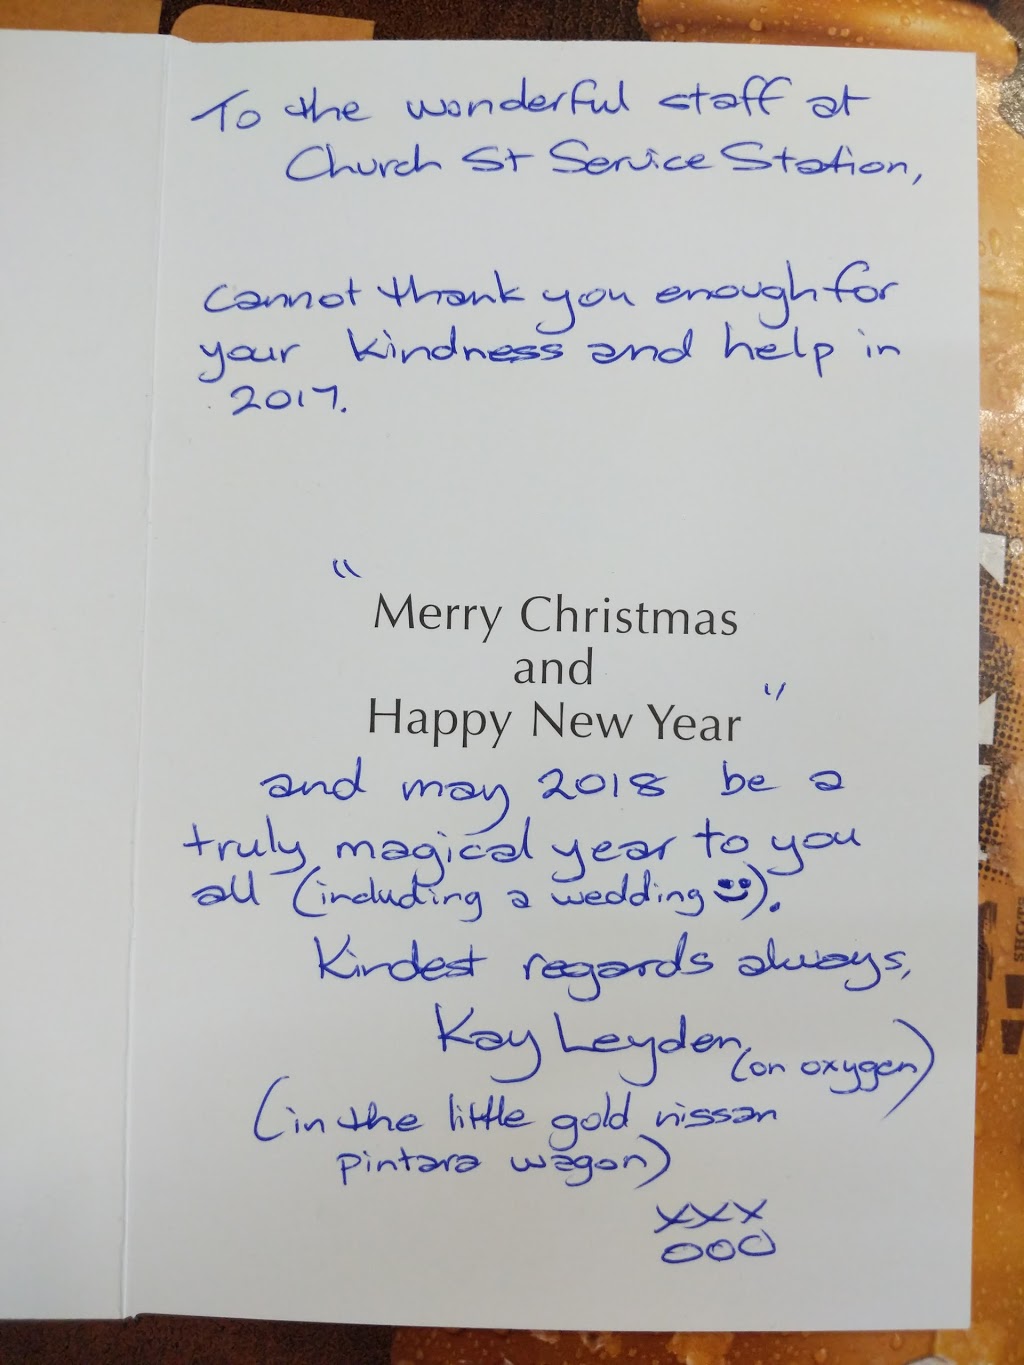 To the wonderful staff at
Church St Service Station,
cannot thank you enough for
your kindness and help in
2017.
"
Merry Christmas
and
Happy New Year "
and may 2018 be a
truly magical year to you
all (including a wedding☺).
Kindest regards always,
Kay Leyden (on oxygen)
(in the little gold nissan
pintara wagon)
xxx
ooo